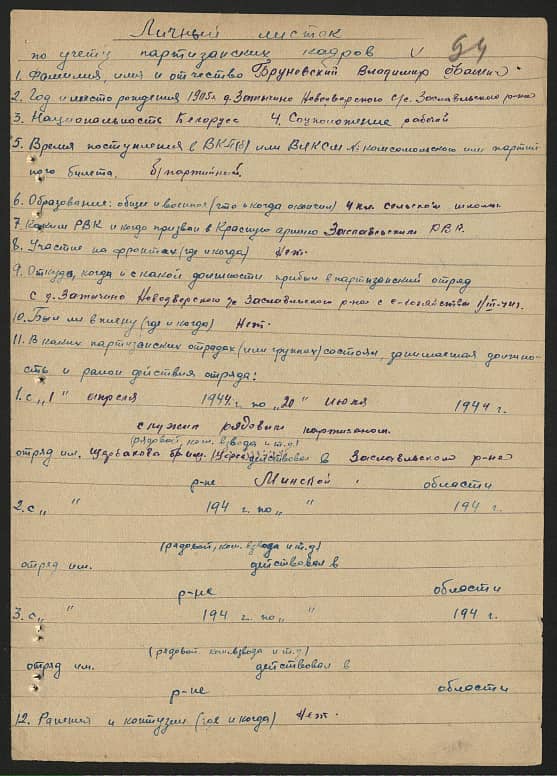 Личный листок
по учету партизанских кадров
1. Фамилия, имя и отчество Бруневский Владимир
2. Год и место рождения 1905г. д. Новодворского с/с. Заславльского р-на
3. Национальность Белорус 4. Соцположение рабочий
5. Время поступления в ВКП(б) или ВЛКСМ № комсомольского или партий
ного билета. б/партийный.
6. Образование: общее и военное (что и когда окончил) 4 кл. сельской школы
7. Каким РВК и когда призван в Красную армию Заславльским РВК.
8. Участие на фронтах (где и когда) Нет.
9. Откуда, когда и с какой должности прибыл в партизанский отряд
с д. Новодверского с/с Заславльского р-на с
10. Был ли в плену (где и когда) Нет.
11. В каких партизанских отрядах (или группах) состоял, занимаемая должно-
сть и район действия отряда:
1. с „1" апреля 1944 г. по „20" июля 1944 г.
служил рядовым партизаном.
(рядовой, ком. взвода и т.д.)
отряд им. Щербакова действовал в Заславльского р-не
р-не Минской области
2. с „ " 194 г. по „ " 194 г.
(рядовой, ком. взвода и т.д)
отряд им. действовал в
р-не области
3. с „ " 194 г. по „ " 194 г.
(рядовой. ком. взвода и т.д)
отряд им. действовал в
р-не области
12. Ранения и контузии (где и когда) Нет.